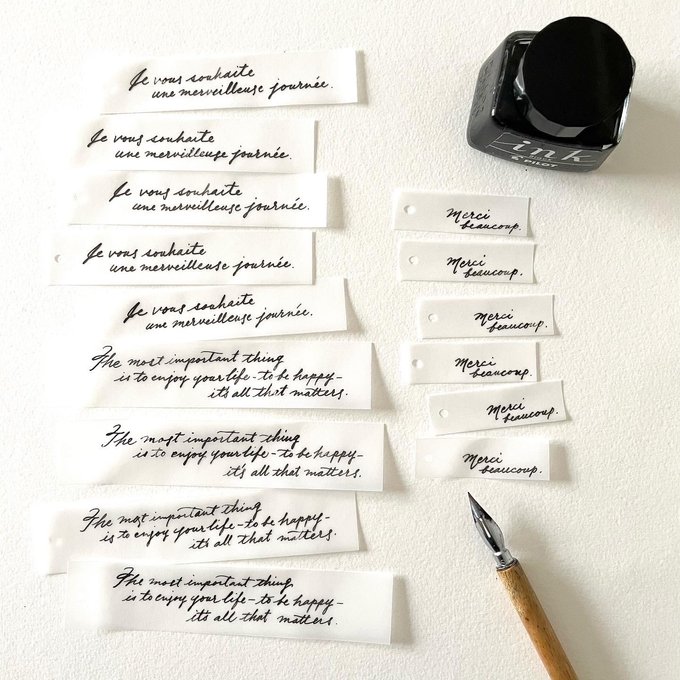 Je vous souhaite
une merveilleuse journée.
Je vous souhaite
une merveilleuse journée.
Je vous souhaite
une merveilleuse journée.
Je vous souhaite
une merveilleuse journée.
Je vous souhaite
une merveilleuse journée.
The most important thing
is to enjoy your life - to be happy -
it's all that matters.
The most important thing
is to enjoy your life - to be happy -
it's all that matters.
The most important thing
is to enjoy your life - to be happy -
it's all that matters.
The most important thing
is to enjoy your life - to be happy -
it's all that matters.
ink
PILOT
Merci
beaucoup.
Merci
beaucoup.
Merci
beaucoup.
Merci
beaucoup.
Merci
beaucoup.
Merci
beaucoup.